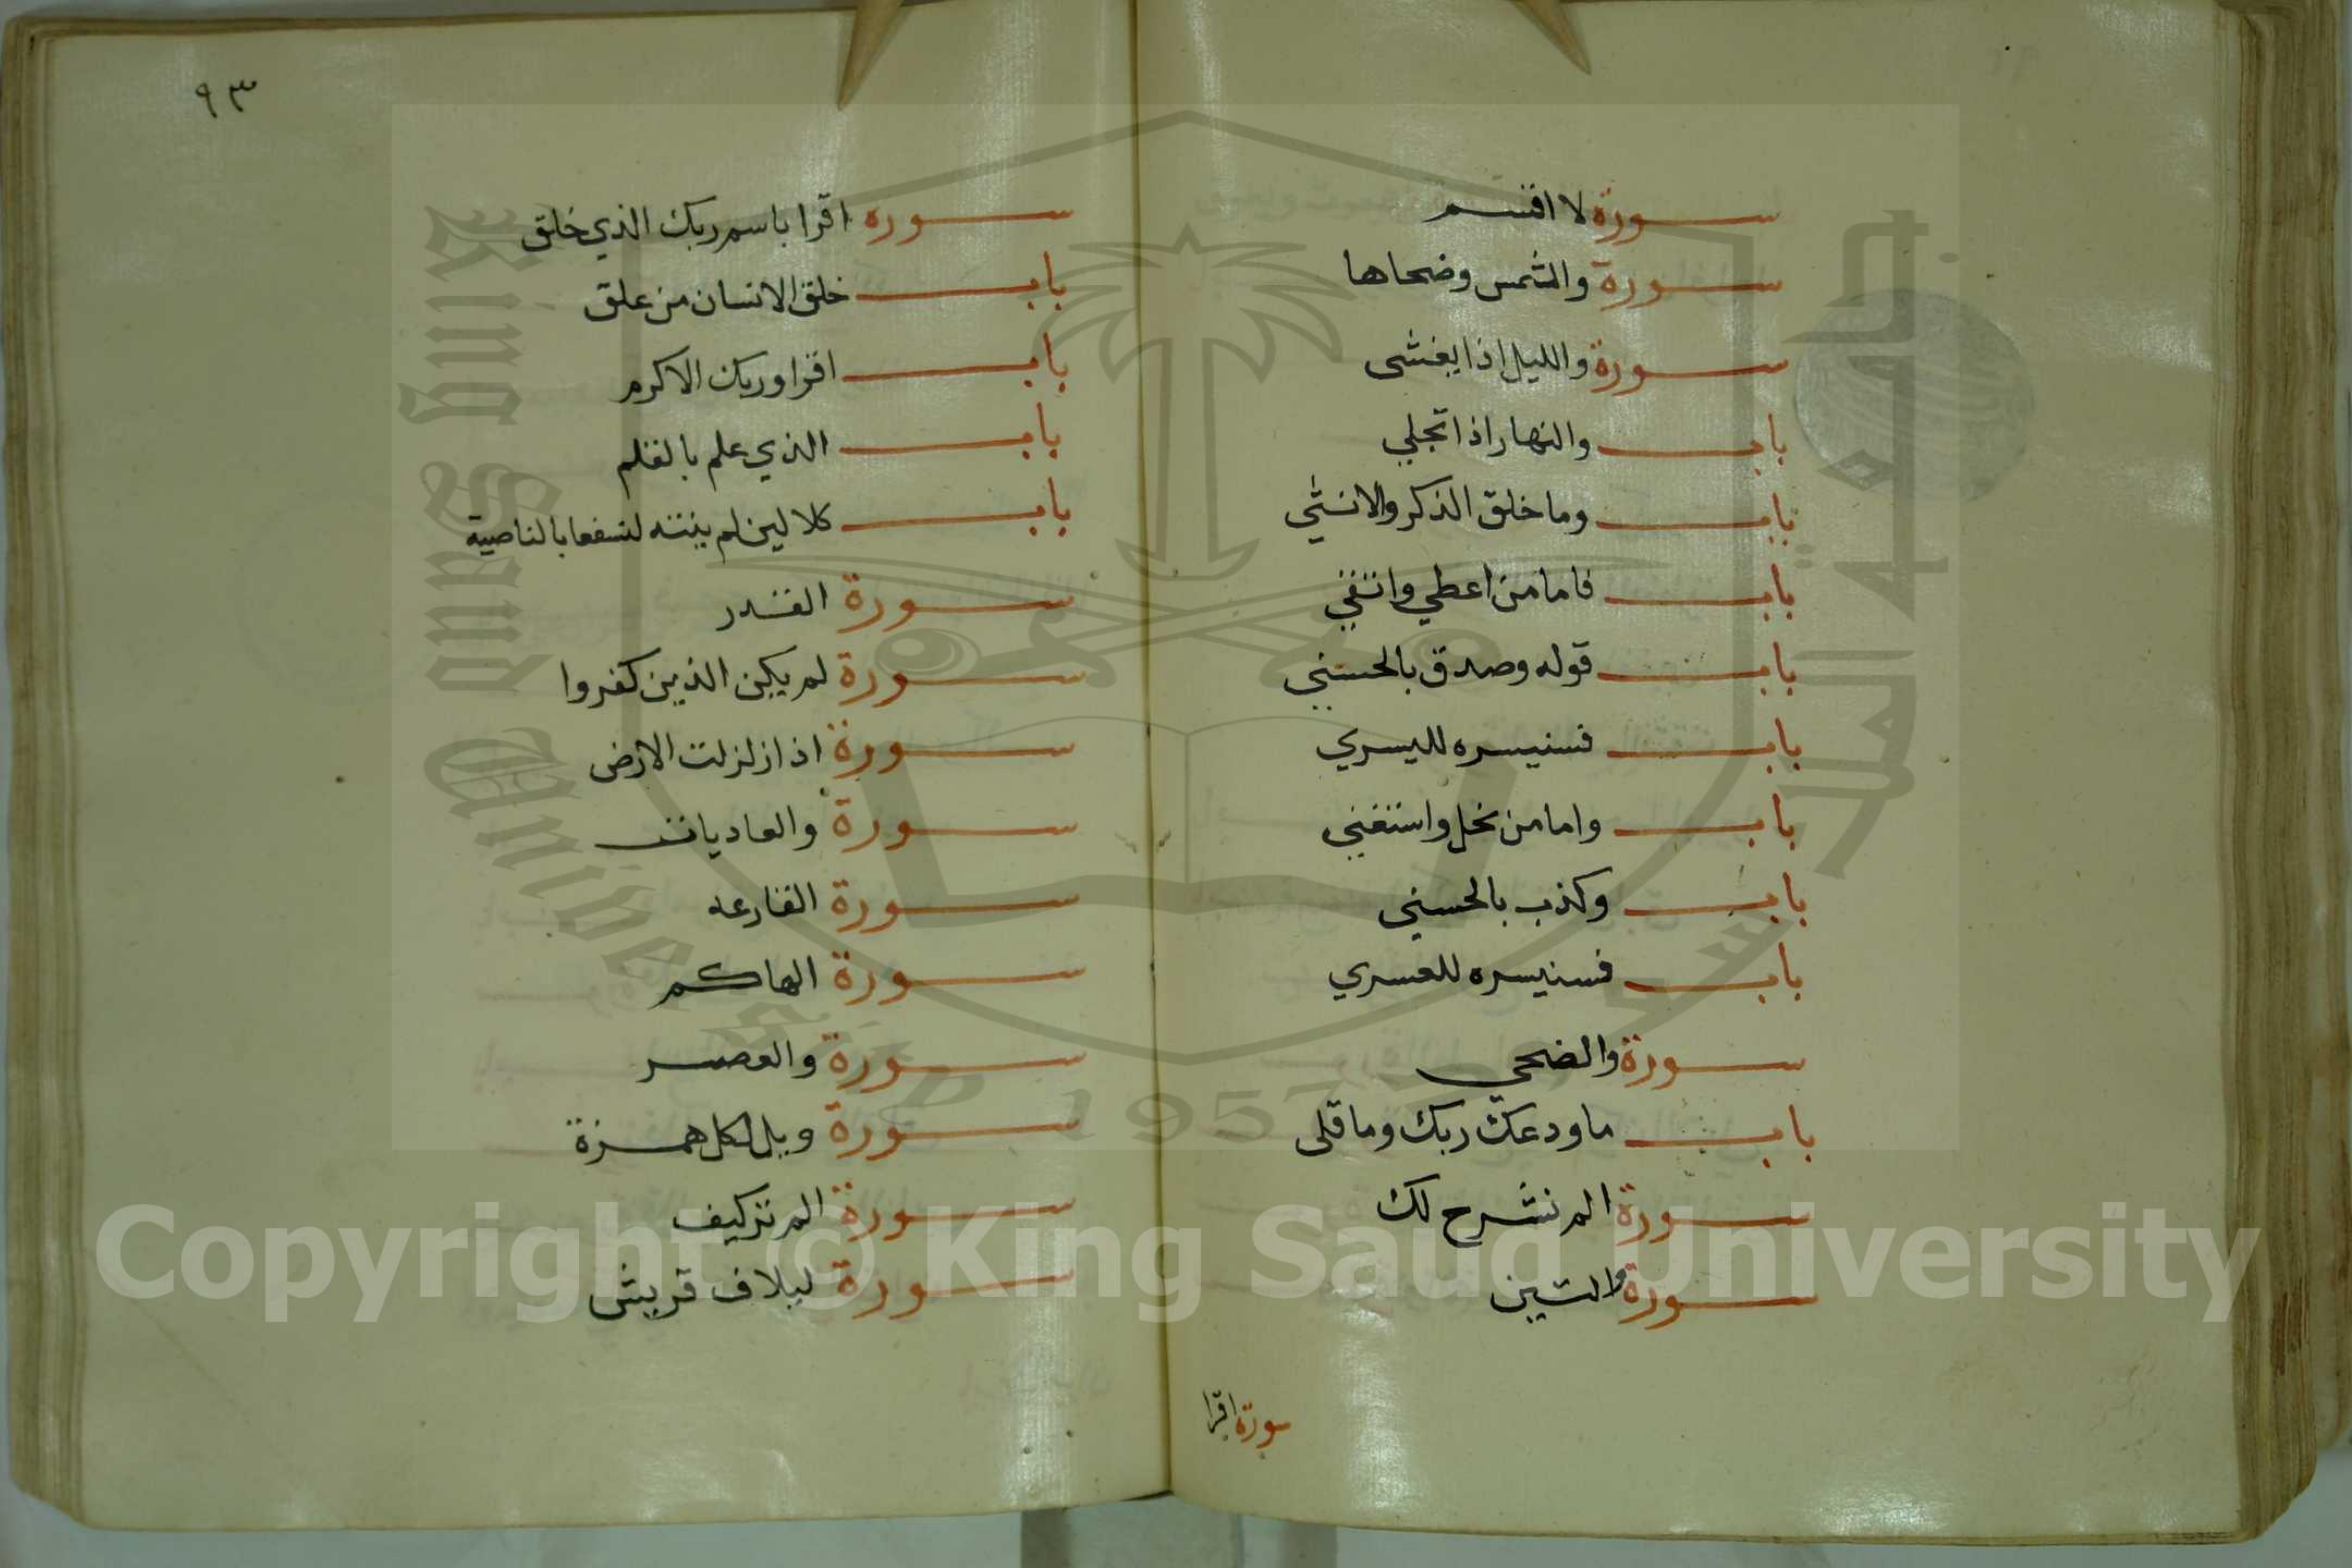 سورة لا اقسم
سورة والشمس وضحاها
سورة والليل اذا يغشى
باب والنهار اذا تجلي
باب وما خلق الذكر والانثي
باب فاما من اعطي واتقي
باب قوله وصدق بالحسني
باب فسنيسره لليسري
باب واما من بخل واستغني
باب وكذب بالحسني
باب فسنيسره للعسري
سورة والضحي
باب ما ودعك ربك وما قلى
سورة الم نشرح لك
سورة والتين
سورة اقرا
٩٣
سوره اقرا باسم ربك الذي خلق
باب خلق الانسان من علق
باب اقرا وربك الاكرم
باب الذي علم بالقلم
باب كلا لين لم ينته لنسفعا بالناصية
سورة القدر
سورة لم يكن الذين كفروا
سورة اذا زلزلت الارض
سورة والعاديات
سورة القارعه
سورة الهاكم
سورة والعصر
سورة ويل لكل همزة
سورة الم تر كيف
سورة ليلاف قريش
Copyright © King Saud University
King Saud University
1957